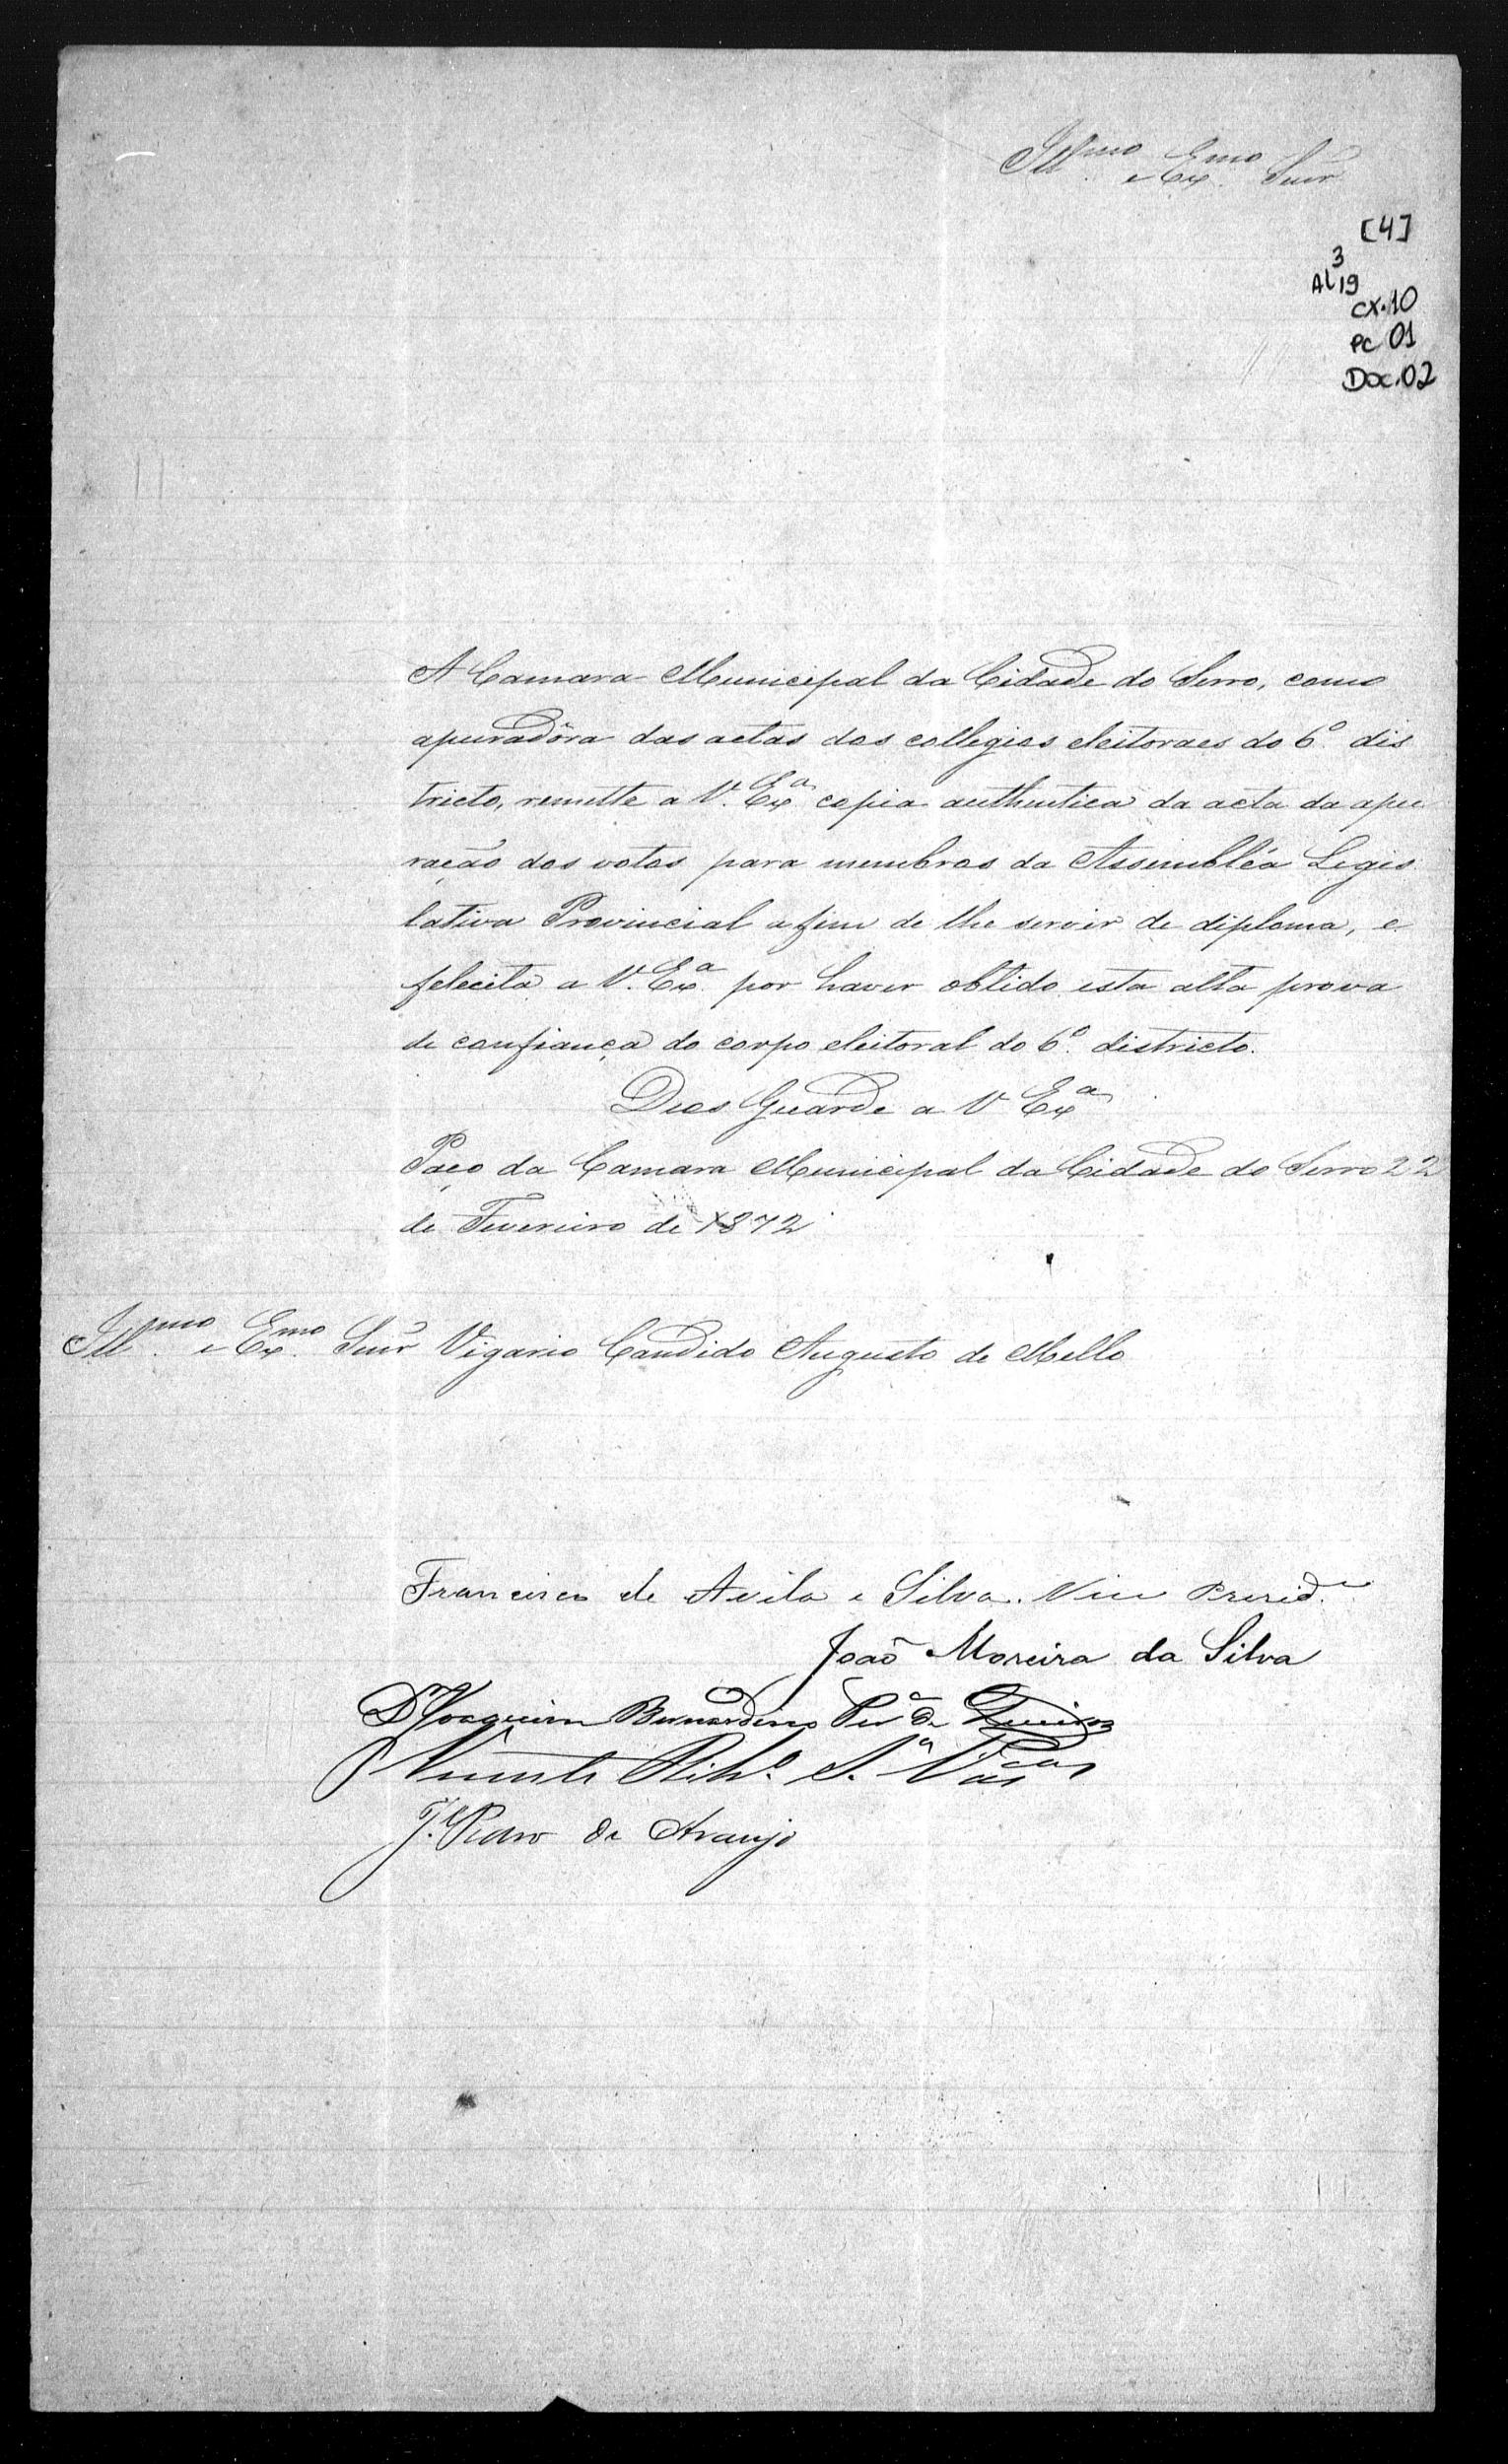 Ill.mo e Ex.mo Snr̃
[4]
3
AL 19
CX.10
PC 01
Doc.02
A Camara Municipal da Cidade do Serro, como
apuradôra das actas dos collegios eleitoraes do 6.º dis
tricto, remette a V. Ex.a copia authentica da acta da apu
ração dos votos para membros da Assembléa Legis
lativa Provincial a fim de lhe servir de diploma, e
felecita a V. Ex.a por haver obtido esta alta prova
de confiança do corpo eleitoral do 6.º districto.
Deos Guarde a V Ex.a
Paço da Camara Municipal da Cidade do Serro 22
de Fevereiro de 1872
Ill.mo e Ex.mo Snr̃ Vigario Candido Augusto de Mello
Francisco de Avila e Silva. Vice Presid.e
João Moreira da Silva
Dr Joaquim Bernardino Per.a de Queiroz
Vicente Rib.º S.a Vas.cos
J.e Pedro de Araujo